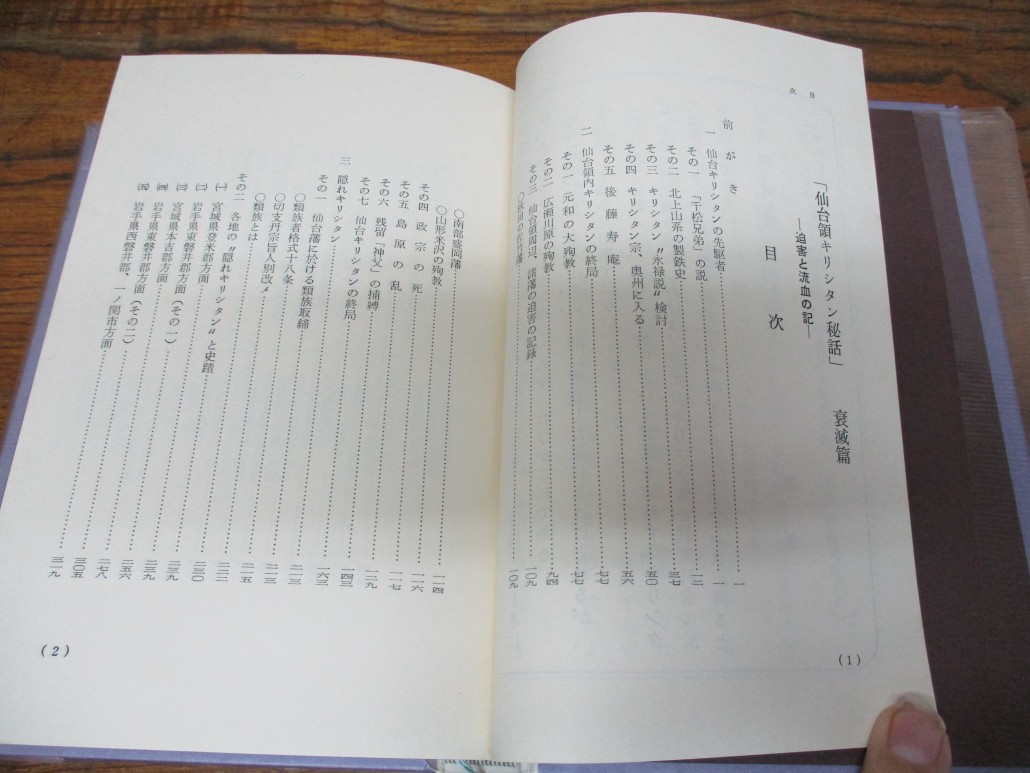 目次
「仙台領キリシタン秘話」 衰滅篇
―迫害と流血の記―
目次
前がき
一 仙台キリシタンの先駆者……一
その一 「千松兄弟」の説……一
その二 北上山系の製鉄史……一二
その三 キリシタン〝永禄説〟検討……三七
その四 キリシタン宗、奥州に入る……五〇
その五 後藤寿庵……五六
二 仙台領内キリシタンの終局……七七
その一 元和の大殉教……七七
その二 広瀬川原の殉教……九四
その三 仙台領周辺、諸藩の迫害の記録……一〇九
……一〇九
(1)
〇南部盛岡藩
〇山形米沢の殉教……一一四
その四 政宗の死……一一六
その五 島原の乱……一一七
その六 残留「神父」の捕縛……一二九
その七 仙台キリシタンの終局……一四三
三 隠れキリシタン……一六三
その一 仙台藩に於ける類族取締……二一三
〇類族者格式十八条……二一三
〇切支丹宗旨人別改メ……二一五
〇類族とは……二三〇
その二 各地の〝隠れキリシタン〟と史蹟……二三九
㈠ 宮城県登米郡方面……二三九
㈡ 岩手県東磐井郡方面(その一)……二五六
㈢ 宮城県本吉郡方面……二七八
㈣ 岩手県東磐井郡方面(その二)……三〇五
㈤ 岩手県西磐井郡、一ノ関市方面……三一九
(2)